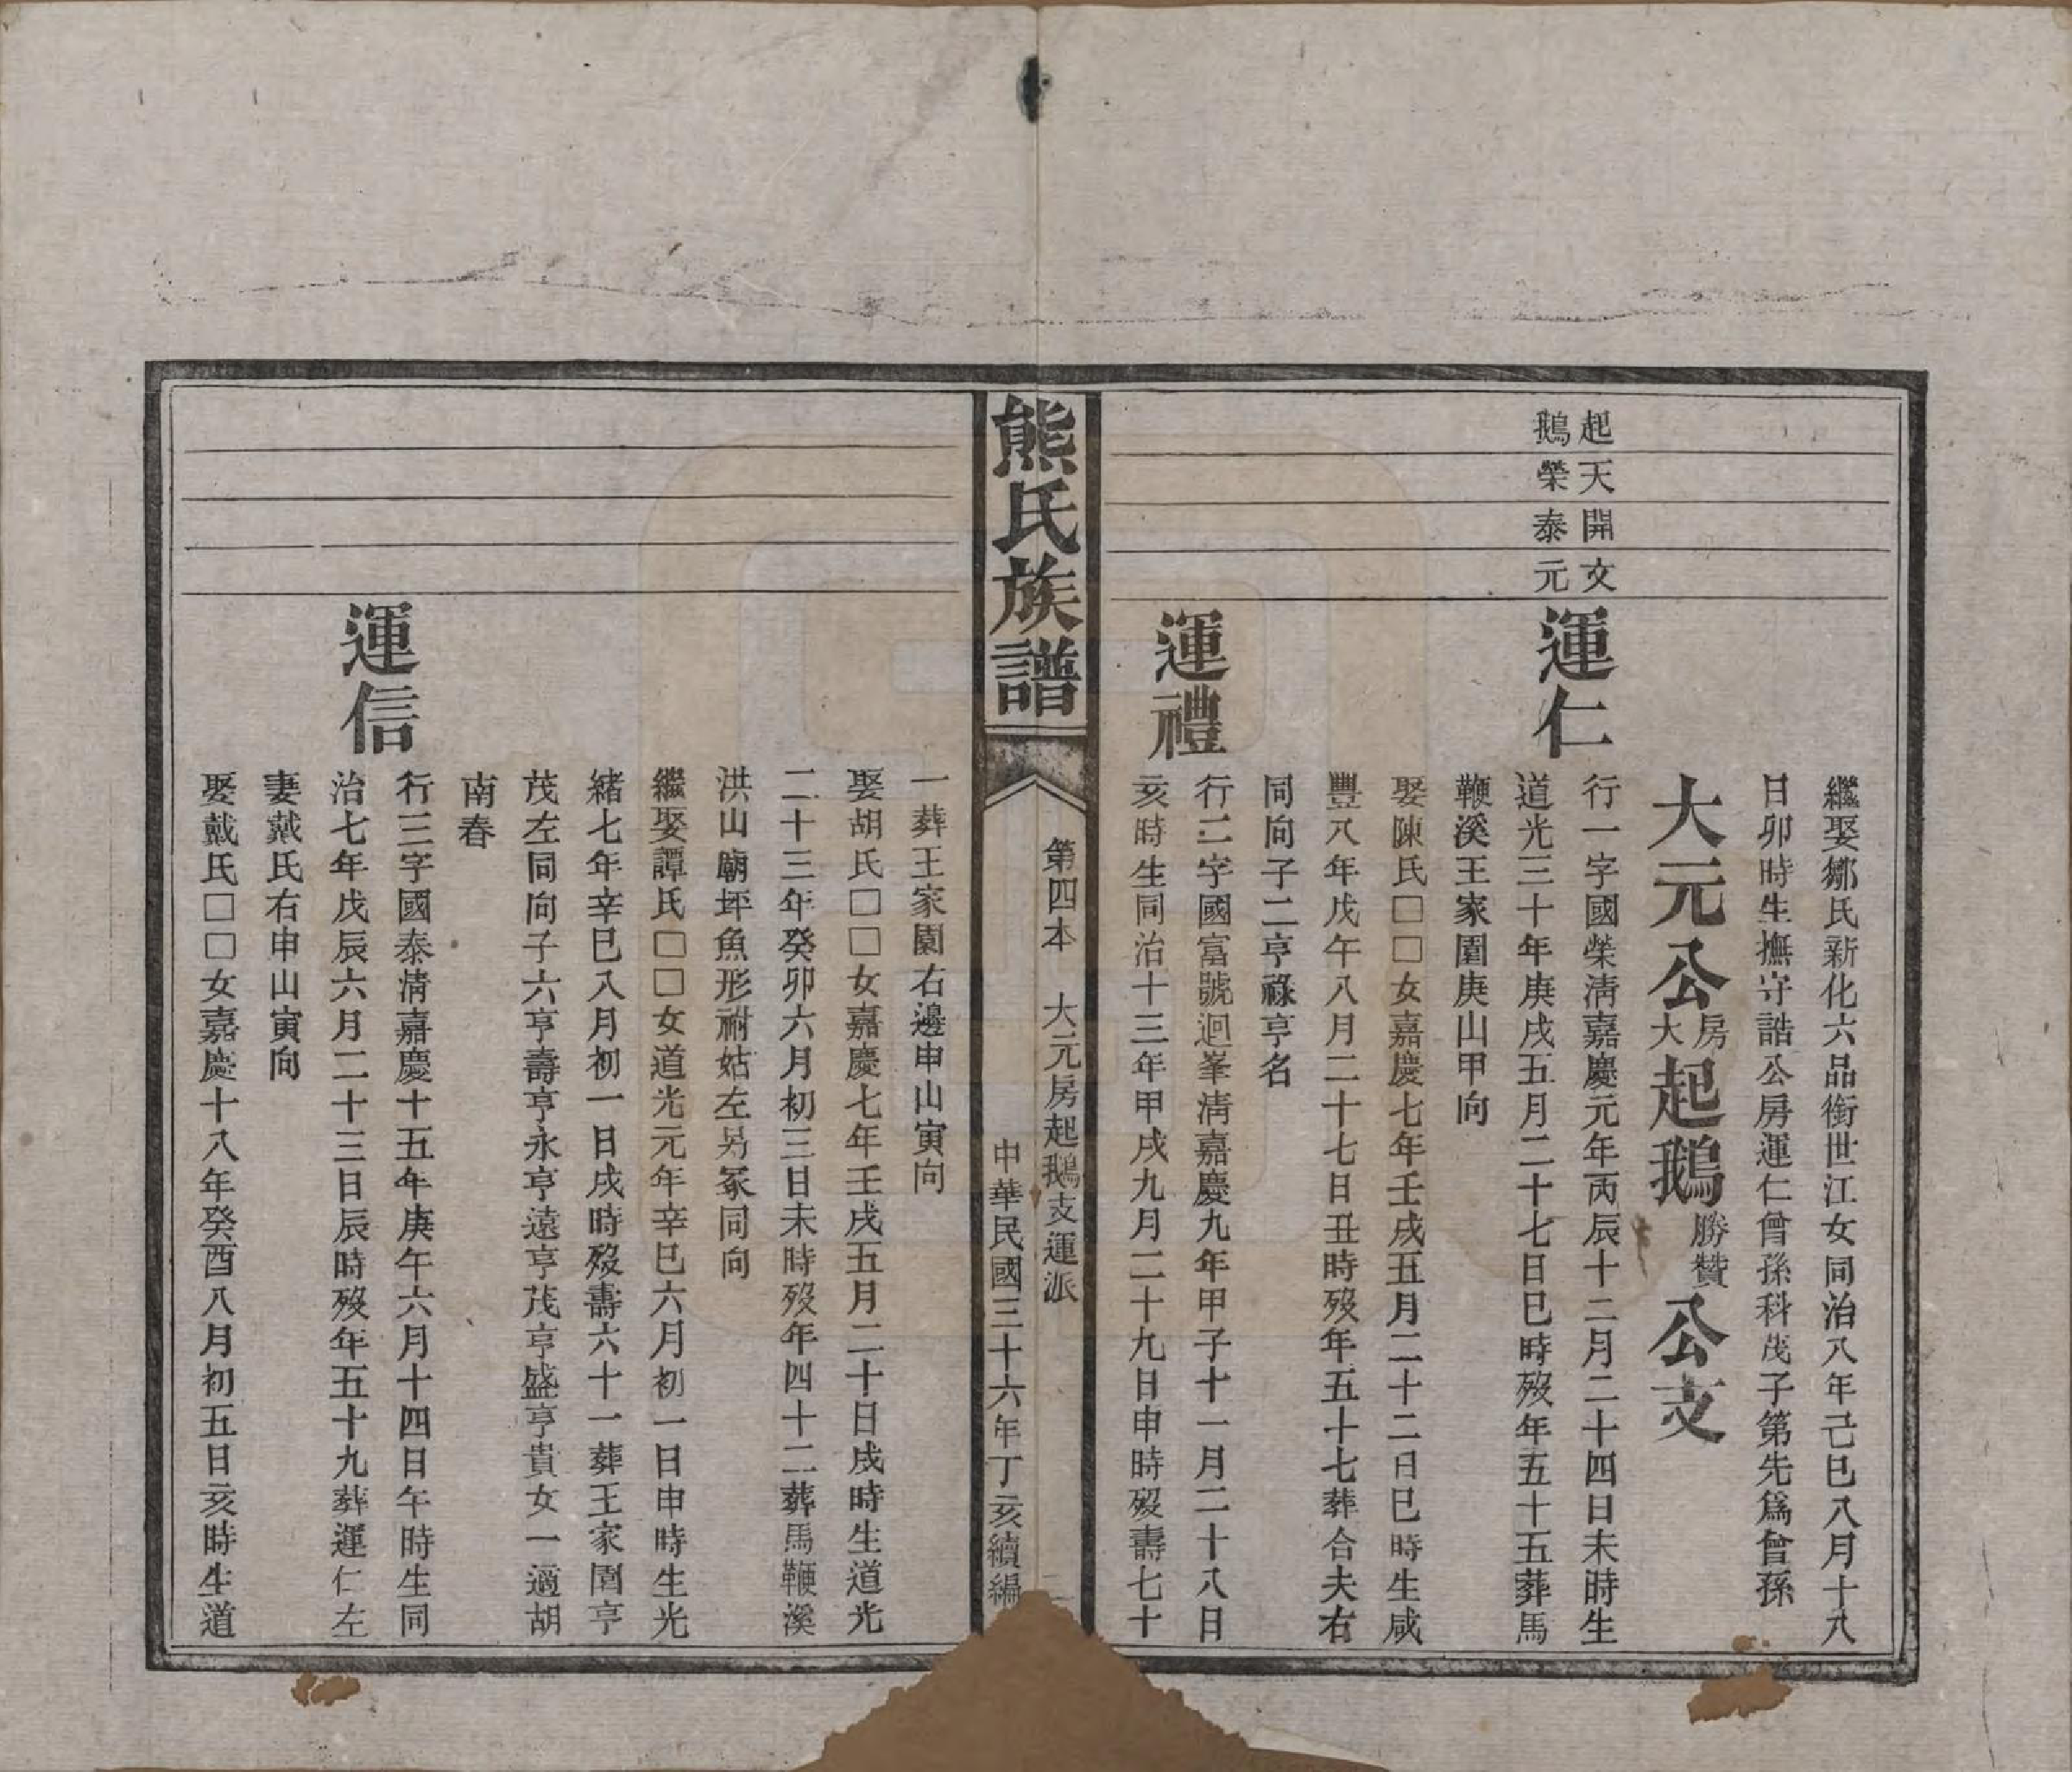 繼娶鄒氏新化六品銜世江女同治八年己巳八月十八
日卯時生撫守誥公房運仁曾孫科茂子第先爲曾孫
大元公大房起鵝勝贊公支
起天開文
鵝榮泰元
運仁
行一字國榮淸嘉慶元年丙辰十二月二十四日未時生
道光三十年庚戌五月二十七日巳時歿年五十五葬馬
鞭溪王家園庚山甲向
娶陳氏□□女嘉慶七年壬戌五月二十二日巳時生咸
豐八年戊午八月二十七日丑時歿年五十七葬合夫右
同向子二亨祿亨名
運禮
行二字國富號迴峯淸嘉慶九年甲子十一月二十八日
亥時生同治十三年甲戌九月二十九日申時歿壽七十
熊氏族譜
第四本 大元房起鵝支運派 二
中華民國三十六年丁亥續編
一葬王家園右邊申山寅向
娶胡氏□□女嘉慶七年壬戌五月二十日戌時生道光
二十三年癸卯六月初三日未時歿年四十二葬馬鞭溪
洪山廟坪魚形祔姑左另冢同向
繼娶譚氏□□女道光元年辛巳六月初一日申時生光
緒七年辛巳八月初一日戌時歿壽六十一葬王家園亨
茂左同向子六亨壽亨永亨遠亨茂亨盛亨貴女一適胡
南春
運信
行三字國泰淸嘉慶十五年庚午六月十四日午時生同
治七年戊辰六月二十三日辰時歿年五十九葬運仁左
妻戴氏右申山寅向
娶戴氏□□女嘉慶十八年癸酉八月初五日亥時生道